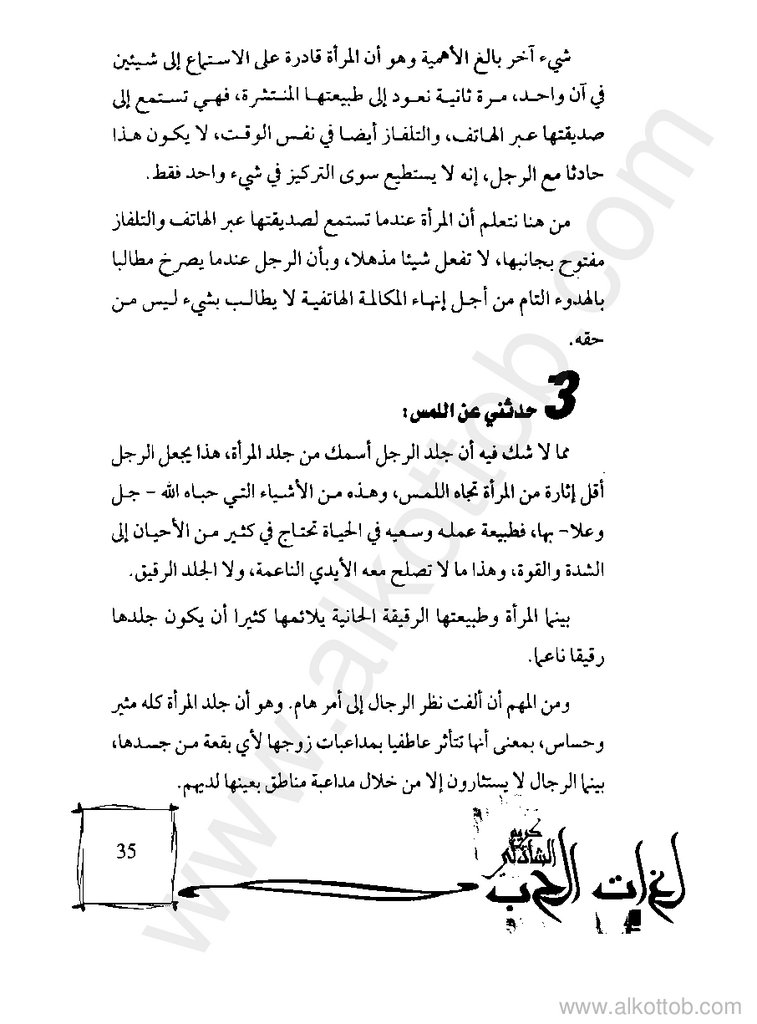 شيء آخر بالغ الأهمية وهو أن المرأة قادرة على الاستماع إلى شيئين
في آن واحد، مرة ثانية نعود إلى طبيعتها المنتشرة، فهي تستمع إلى
صديقتها عبر الهاتف، والتلفاز أيضا في نفس الوقت، لا يكون هذا
حادثا مع الرجل، إنه لا يستطيع سوى التركيز في شيء واحد فقط.
من هنا نتعلم أن المرأة عندما تستمع لصديقتها عبر الهاتف والتلفاز
مفتوح بجانبها، لا تفعل شيئا مذهلا، وبأن الرجل عندما يصرخ مطالبا
بالهدوء التام من أجل إنهاء المكالمة الهاتفية لا يطالب بشيء ليس من
حقه.
3 حدثني عن اللمس:
مما لا شك فيه أن جلد الرجل أسمك من جلد المرأة، هذا يجعل الرجل
أقل إثارة من المرأة تجاه اللمس، وهذه من الأشياء التي حباه الله – جل
وعلا- بها، فطبيعة عمله وسعيه في الحياة تحتاج في كثير من الأحيان إلى
الشدة والقوة، وهذا ما لا تصلح معه الأيدي الناعمة، ولا الجلد الرقيق.
بينما المرأة وطبيعتها الرقيقة الحانية يلائمها كثيرا أن يكون جلدها
رقيقا ناعما.
ومن المهم أن ألفت نظر الرجال إلى أمر هام. وهو أن جلد المرأة كله مثير
وحساس، بمعنى أنها تتأثر عاطفيا بمداعبات زوجها لأي بقعة من جسدها،
بينما الرجال لا يستثارون إلا من خلال مداعبة مناطق بعينها لديهم.
كريم
الشاذلي
لغات الحب
35
www.alkottob.com
www.alkottob.com